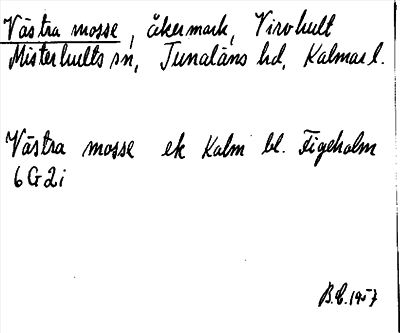 Västra mosse, åkermark, Virvhult
Misterhults sn, Tunaläns hd, Kalmar l.
Västra mosse ek Kalm bl. Figeholm
6 G 2 i
B.E. 1957